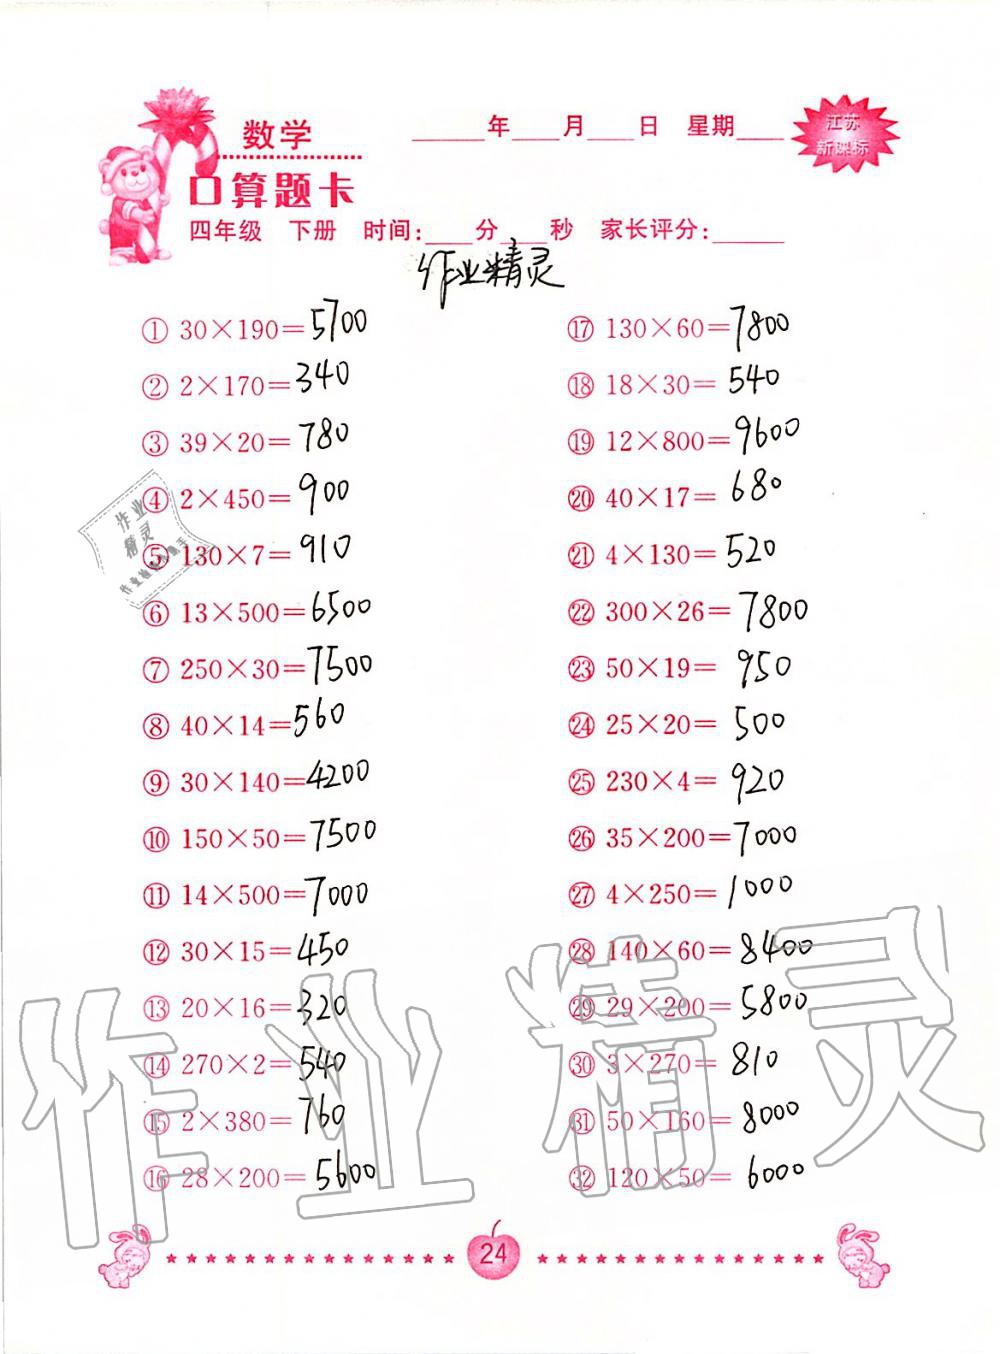 数学
口算题卡
____年____月____日 星期____
江苏
新课标
四年级 下册 时间:____分____秒 家长评分:____
作业精灵
① 30×190=5700
② 2×170=340
③ 39×20=780
④ 2×450=900
⑤ 130×7=910
⑥ 13×500=6500
⑦ 250×30=7500
⑧ 40×14=560
⑨ 30×140=4200
⑩ 150×50=7500
⑪ 14×500=7000
⑫ 30×15=450
⑬ 20×16=320
⑭ 270×2=540
⑮ 2×380=760
⑯ 28×200=5600
⑰ 130×60=7800
⑱ 18×30=540
⑲ 12×800=9600
⑳ 40×17=680
㉑ 4×130=520
㉒ 300×26=7800
㉓ 50×19=950
㉔ 25×20=500
㉕ 230×4=920
㉖ 35×200=7000
㉗ 4×250=1000
㉘ 140×60=8400
㉙ 29×200=5800
㉚ 3×270=810
㉛ 50×160=8000
㉜ 120×50=6000
作业
精灵
作业精灵
24